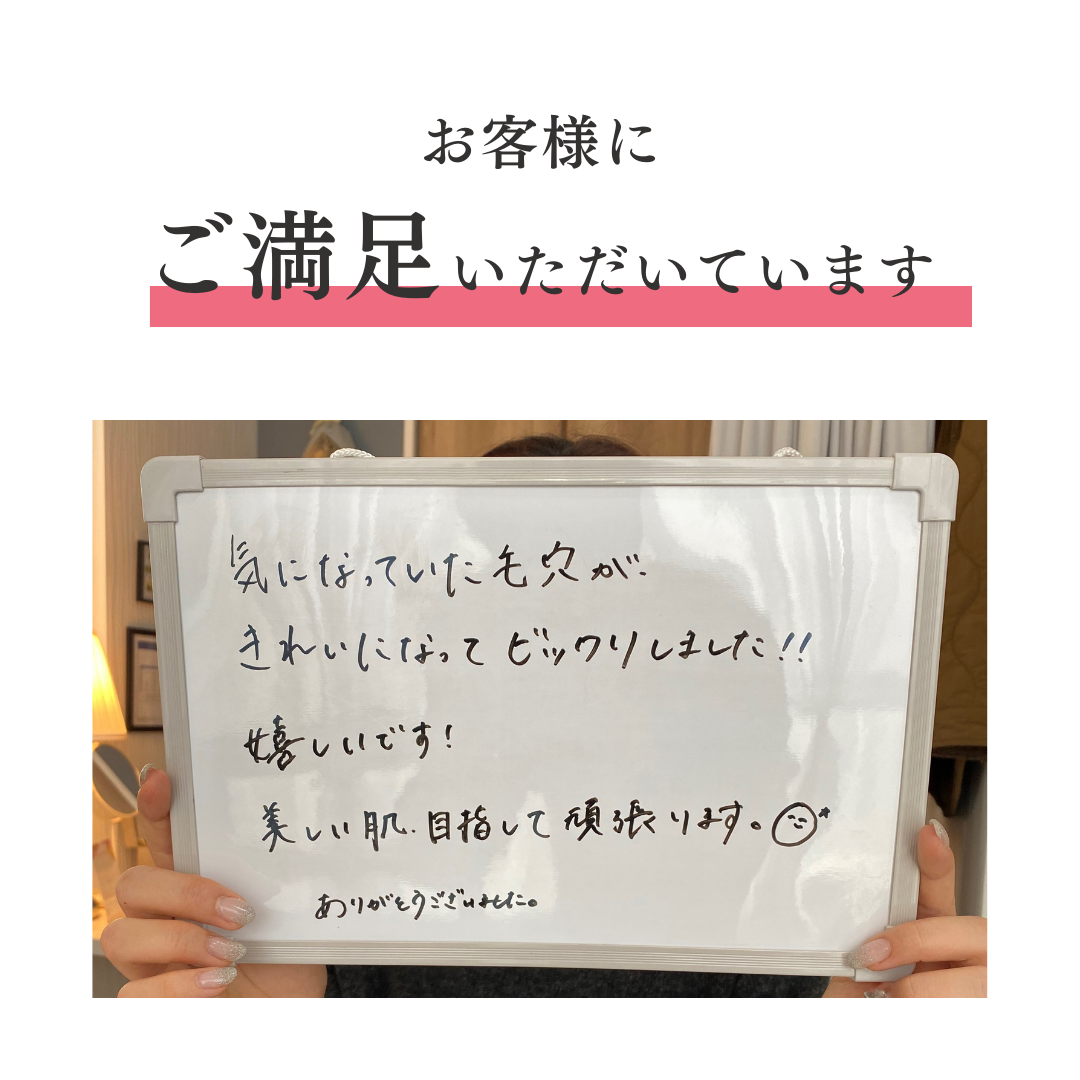 お客様に
ご満足いただいています
気になっていた毛穴が
きれいになってビックリしました!!
嬉しいです!
美しい肌、目指して頑張ります。
ありがとうございました。